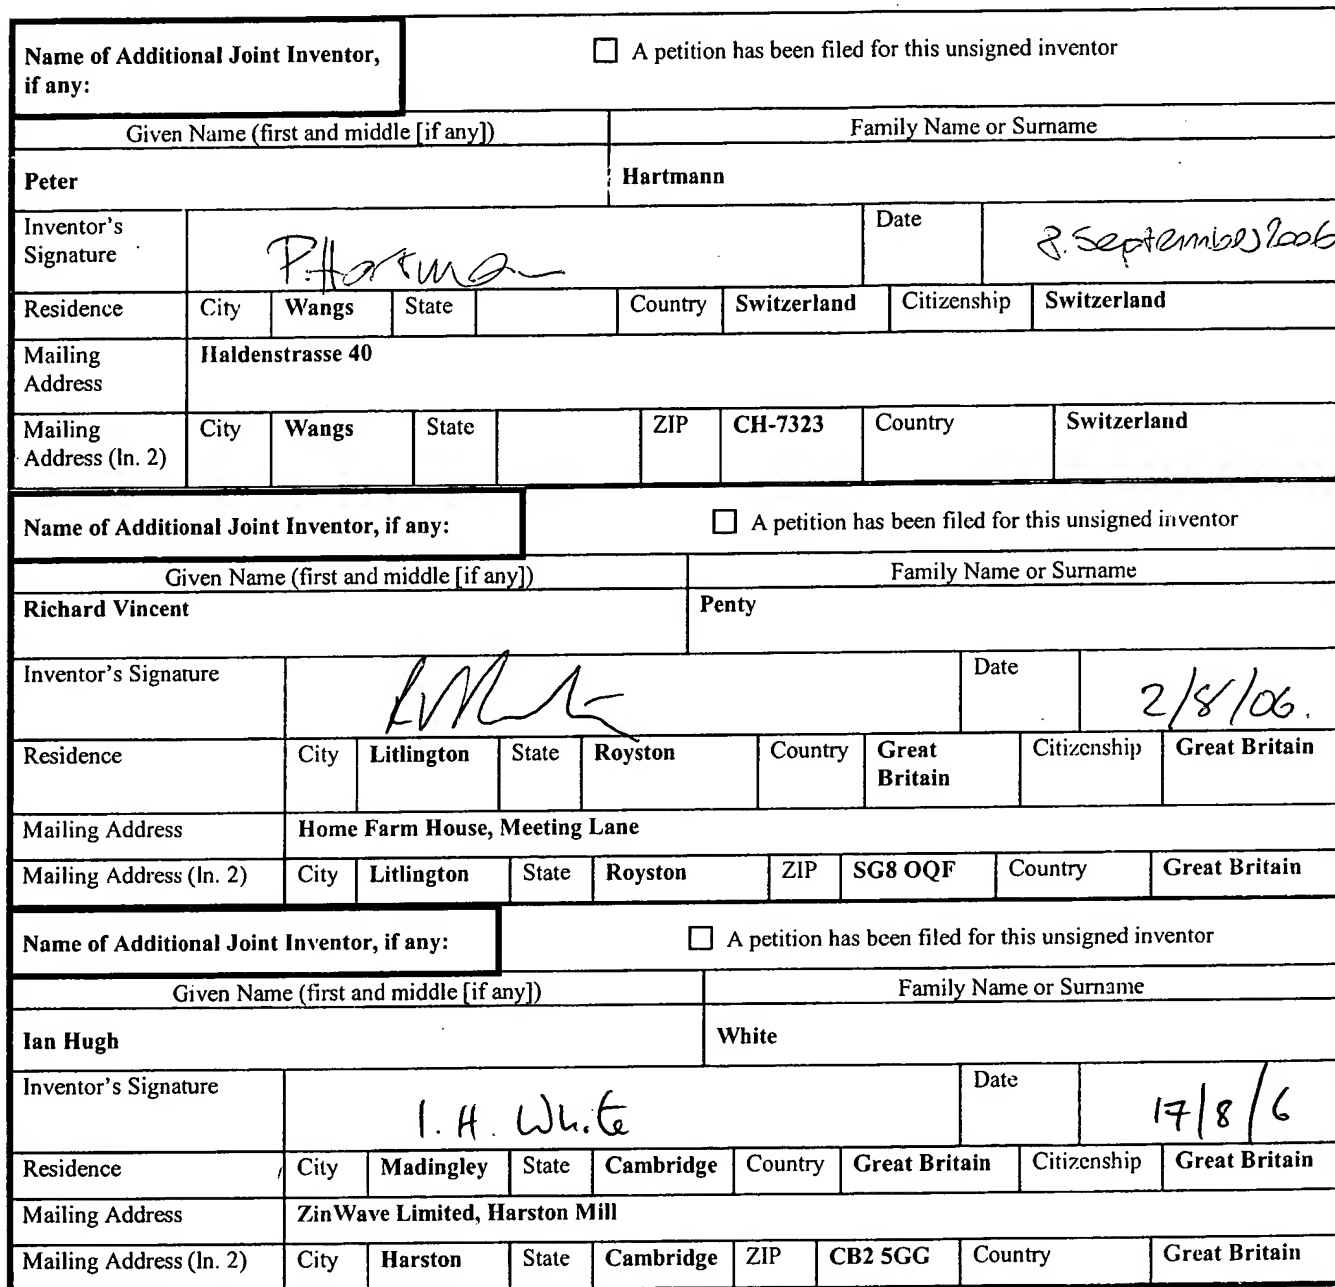 Name of Additional Joint Inventor, if any:
☐ A petition has been filed for this unsigned inventor
Given Name (first and middle [if any]) Family Name or Surname
Peter Hartmann
Inventor's Signature P. Hartman Date 8. September 2006
Residence City Wangs State Country Switzerland Citizenship Switzerland
Mailing Address Haldenstrasse 40
Mailing Address (ln. 2) City Wangs State ZIP CH-7323 Country Switzerland
Name of Additional Joint Inventor, if any: ☐ A petition has been filed for this unsigned inventor
Given Name (first and middle [if any]) Family Name or Surname
Richard Vincent Penty
Inventor's Signature Date 2/8/06.
Residence City Litlington State Royston Country Great Britain Citizenship Great Britain
Mailing Address Home Farm House, Meeting Lane
Mailing Address (ln. 2) City Litlington State Royston ZIP SG8 OQF Country Great Britain
Name of Additional Joint Inventor, if any: ☐ A petition has been filed for this unsigned inventor
Given Name (first and middle [if any]) Family Name or Surname
Ian Hugh White
Inventor's Signature I. H. White Date 17/8/6
Residence City Madingley State Cambridge Country Great Britain Citizenship Great Britain
Mailing Address ZinWave Limited, Harston Mill
Mailing Address (ln. 2) City Harston State Cambridge ZIP CB2 5GG Country Great Britain